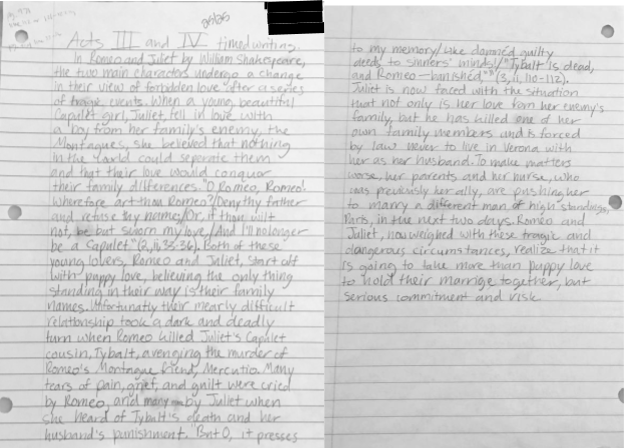 25/25
Acts III and IV timedwriting.
In Romeo and Juliet by William Shakespeare,
the two main characters undergo a change
in their view of forbidden love after a series
of tragic events. When a young, beautiful
Capulet girl, Juliet, fell in love with
a boy from her family's enemy, the
Montagues, she believed that nothing
in the world could seperate them
and that their love would conquor
their family differences. "O Romeo, Romeo!
Wherefore art thou Romeo?/Deny thy father
and refuse thy name;/Or, if thou wilt
not, be but sworn my love,/And I'll no longer
be a Capulet" (2,ii,33-36). Both of these
young lovers, Romeo and Juliet, start off
with puppy love, believing the only thing
standing in their way is their family
names. Unfortunatly their mearly difficult
relationship took a dark and deadly
turn when Romeo killed Juliet's Capulet
cousin, Tybalt, avenging the murder of
Romeo's Montague friend, Mercutio. Many
tears of pain, grief, and guilt were cried
by Romeo, and many by Juliet when
she heard of Tybalt's death and her
husband's punishment. "But O, it presses
to my memory/Like damned guilty
deeds to sinners' minds!/"Tybalt is dead,
and Romeo—banished."" (3,ii,110-112).
Juliet is now faced with the situation
that not only is her love from her enemy's
family, but he has killed one of her
own family members and is forced
by law never to live in Verona with
her as her husband. To make matters
worse, her parents and her nurse, who
was previously her ally, are pushing her
to marry a different man of high standings,
Paris, in the next two days. Romeo and
Juliet, now weighed with these tragic and
dangerous circumstances, realize that it
is going to take more than puppy love
to hold their marrige together, but
serious commitment and risk